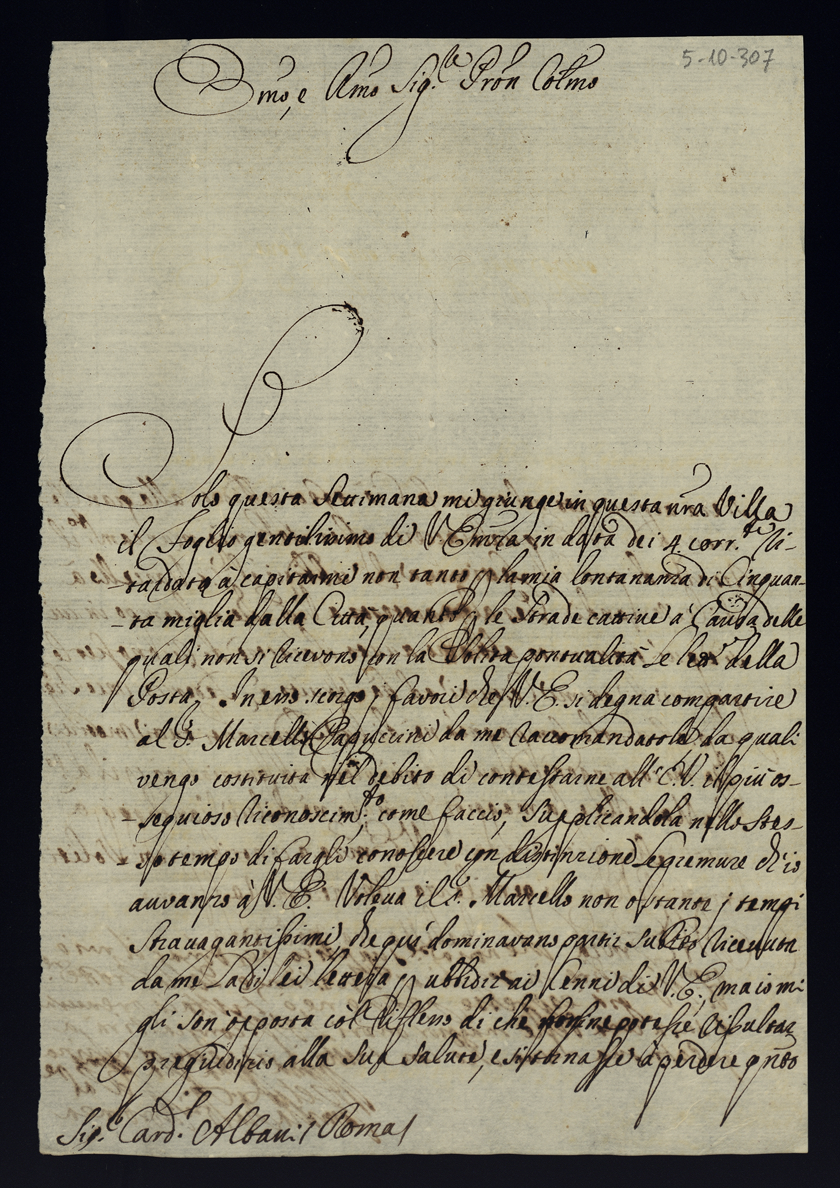 5-10-307
Emo, e Rmo Sig.re Pron Colmo
Solo questa Settimana mi giunge in questa nra Villa
il Foglio gentilissimo di V. Emza in data dei 4. corr.te Ri-
-tardato à capitarmi non tanto p la mia lontananza di Cinquan-
-ta miglia dalla Città, quanto p le Strade cattive à Causa delle
quali non si ricevono con la solita pontualità Le lre della
Posta, In esso scorgo i favori che V. E. si degna compartire
al S. Marcello Papuccini da me raccomandatole, da quali
vengo costituita nel debito di contestarne all' E. V. il più os-
-sequioso riconoscim.to come faccio, Supplicandola nello Stes-
-so tempo di fargli conoscere con distinzione Le premure ch'io
avvanzo à V. E. Voleva il S. Marcello non ostante i tempi
Stravagantissimi, che quà dominavano partir Subito ricevuta
da me La di lei lettera p ubbidir ai Cenni di V. E., ma io mi
gli son opposta col riflesso di che non ne potesse risultar
pregiudizio alla Sua Salute, e si tornasse à perdere qnto
Sig. Card.l Albani / Roma /